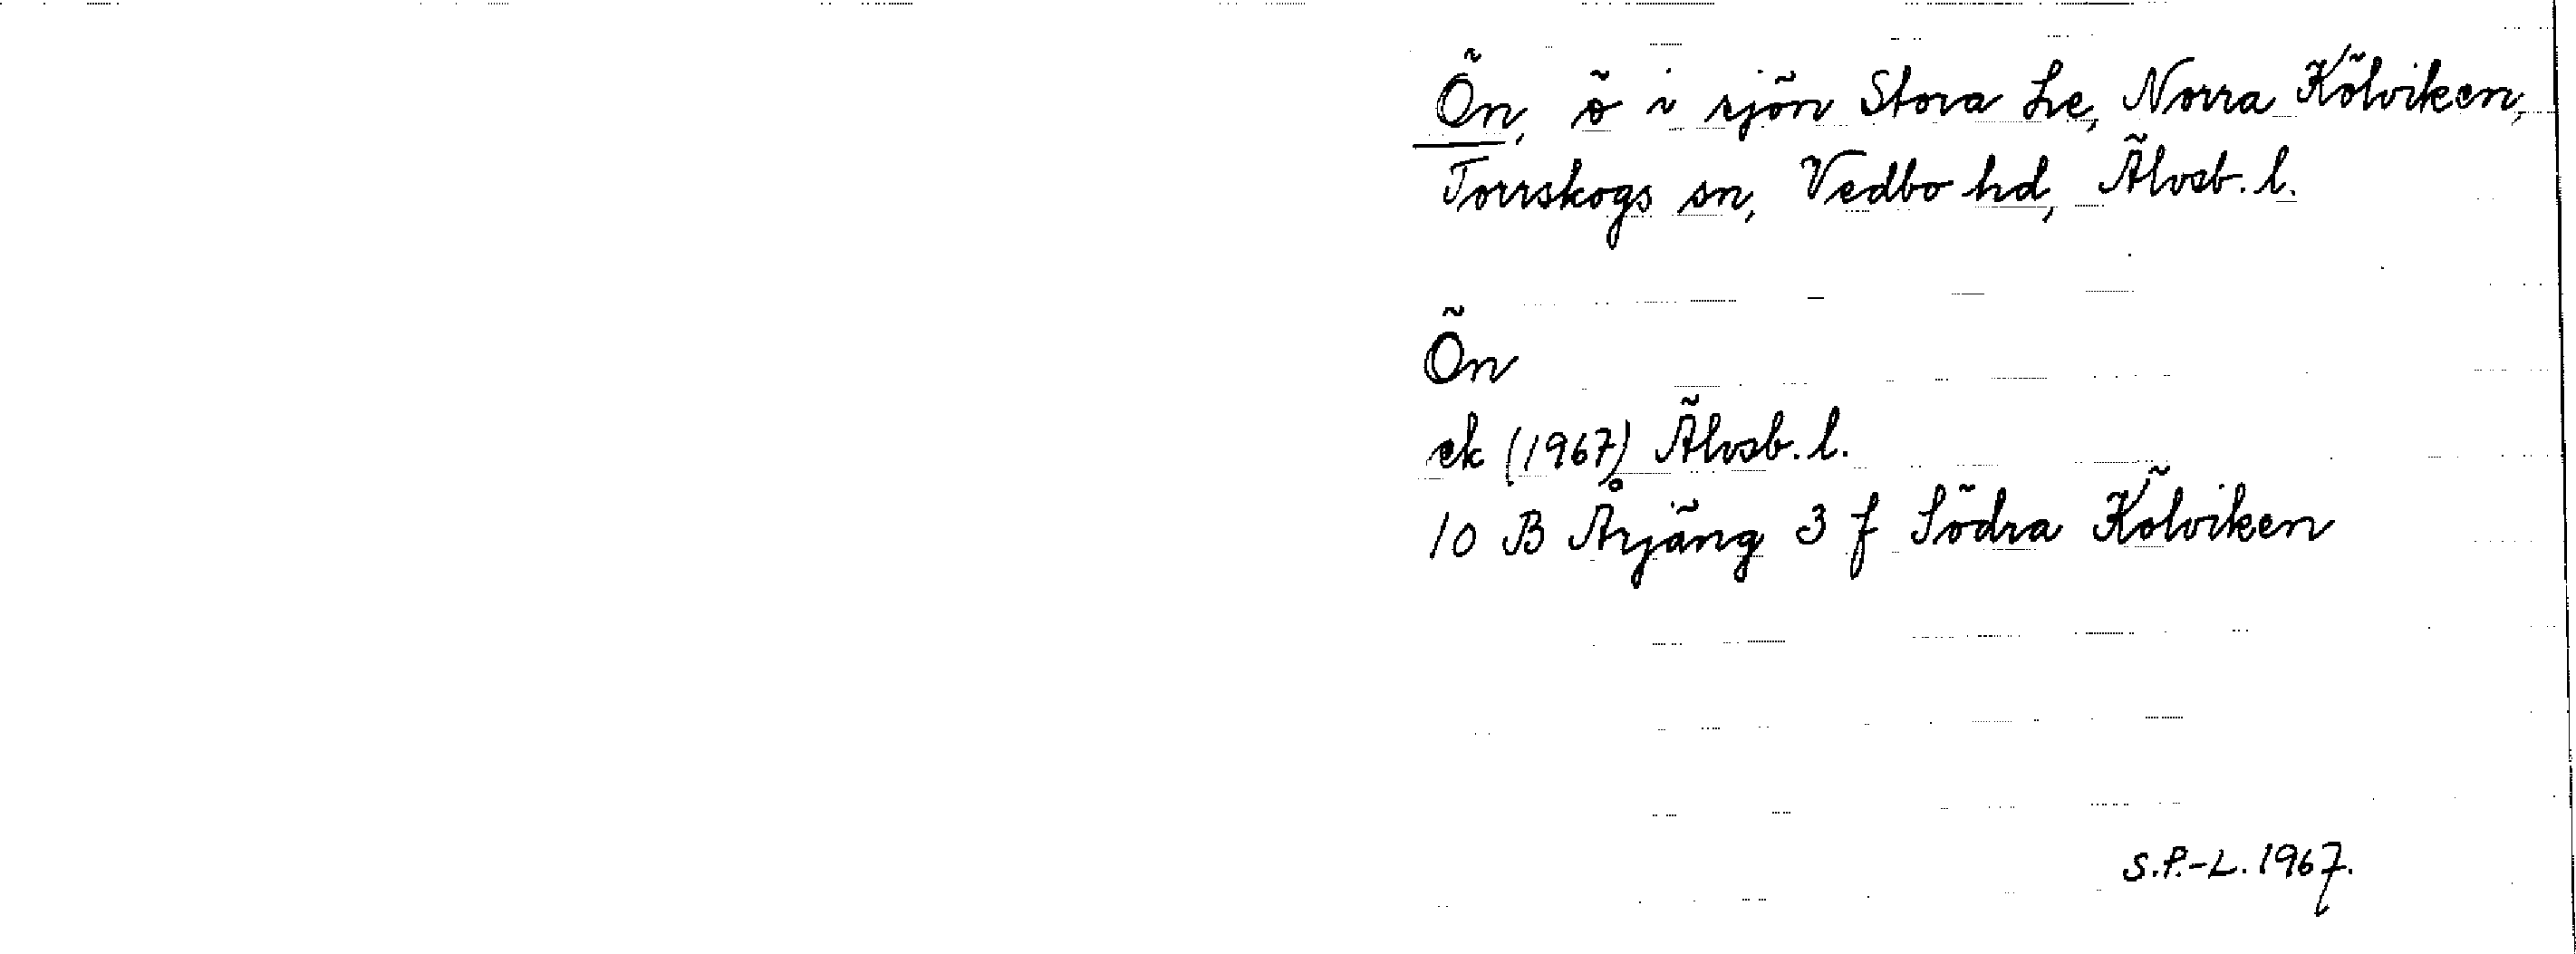 Ön, ö i sjön Stora Le, Norra Kölviken,
Torrskogs sn, Vedbo hd, Älvsb. l.
Ön
ek (1967) Älvsb. l.
10 B Årjäng 3 f Södra Kölviken
S.P.-L. 1967.